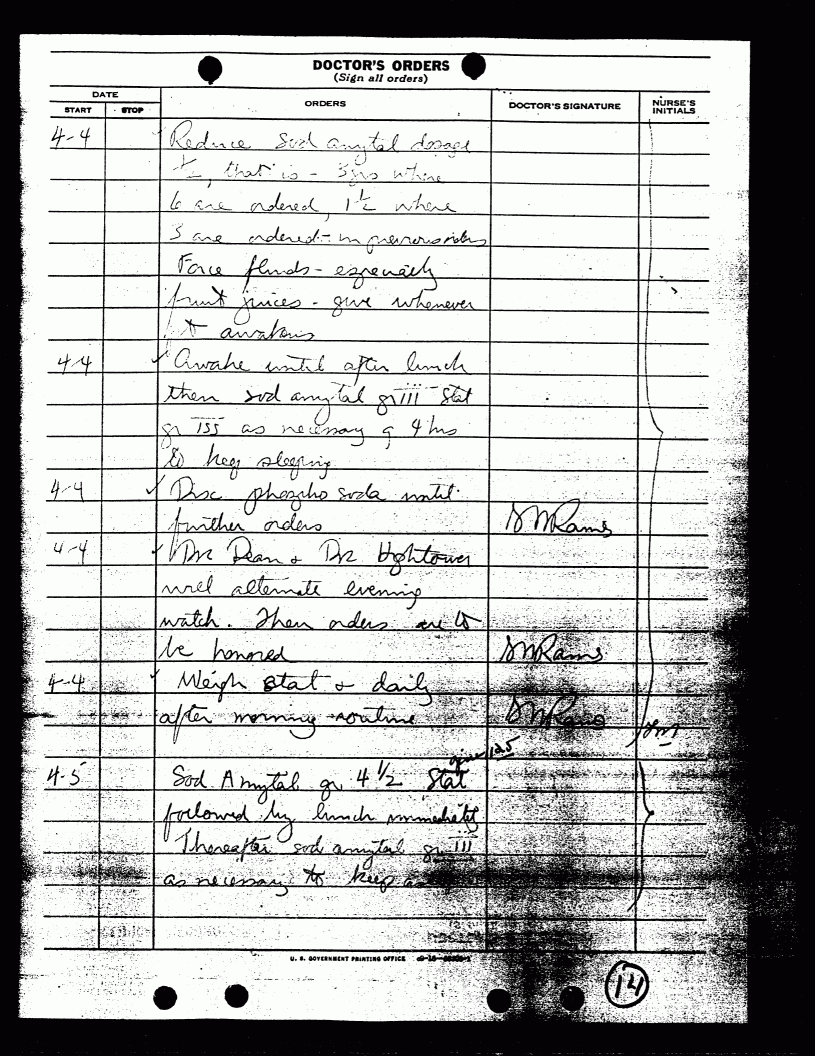 DOCTOR'S ORDERS
(Sign all orders)
DATE
START STOP ORDERS DOCTOR'S SIGNATURE NURSE'S INITIALS
4-4 Reduce Sod amytal dosage
1/2, that is - 3 grs where
6 are ordered, 1 1/2 where
3 are ordered - in previous orders
Force fluids - especially
fruit juices - give whenever
pt awakens
4-4 ✓ Awake until after lunch
then sod amytal gr III Stat
gr iss as necessary q 4 hrs
to keep sleeping
4-4 ✓ Disc phospho soda until
further orders
4-4 ✓ Dr Dean & Dr Hightower
will alternate evening
watch. Their orders are to
be honored
4-4 ✓ Weigh stat & daily
after morning routine
given 125
4-5 Sod Amytal gr 4 1/2 Stat
followed by lunch immediately
Thereafter sod amytal gr III
as necessary to keep
U. S. GOVERNMENT PRINTING OFFICE
14